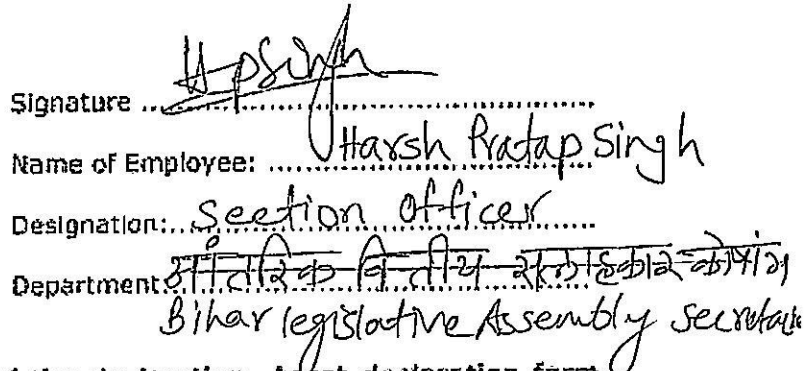 Signature ...HpSingh...
Name of Employee: ...Harsh Pratap Singh
Designation:..Section Officer...
Department: आंतरिक वित्तीय सलाहकार कोषांग
Bihar legislative Assembly